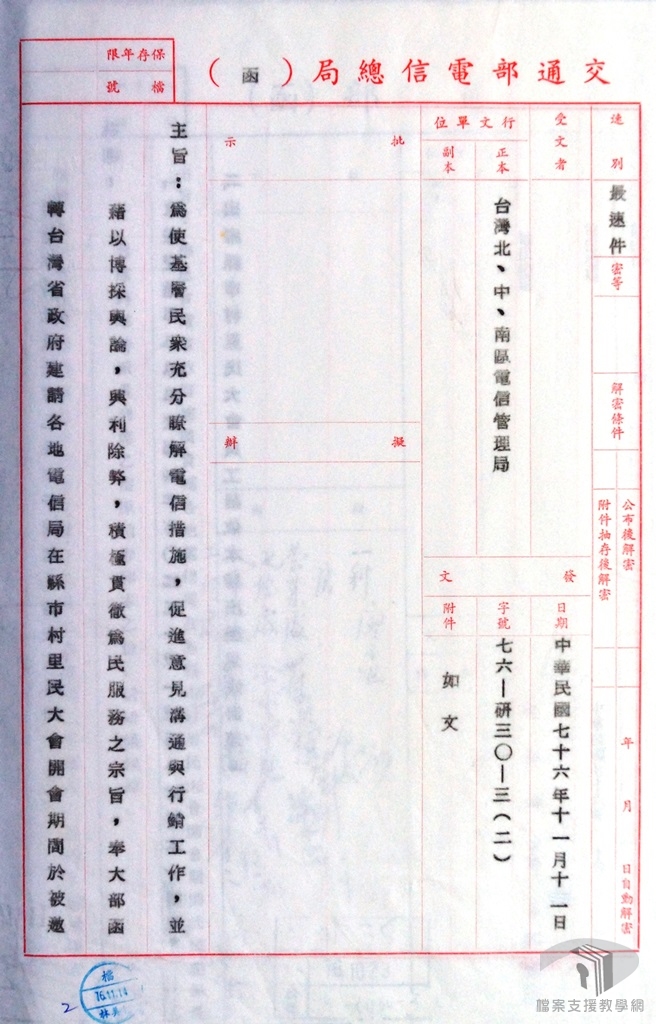 交通部電信總局（函）
保存年限
檔號
速別
最速件
密等
解密條件
公布後解密
附件抽存後解密
年 月 日自動解密
受文者
行文單位
正本
副本
台灣北、中、南區電信管理局
發文
日期
中華民國七十六年十一月十一日
字號
七六—研三〇—三(二)
附件
如文
批示
擬辦
主旨：為使基層民眾充分瞭解電信措施，促進意見溝通與行銷工作，並
藉以博採輿論，興利除弊，積極貫徹為民服務之宗旨，奉大部函
轉台灣省政府建請各地電信局在縣市村里民大會開會期間於被邀
檔
76.11.14
2
檔案支援教學網